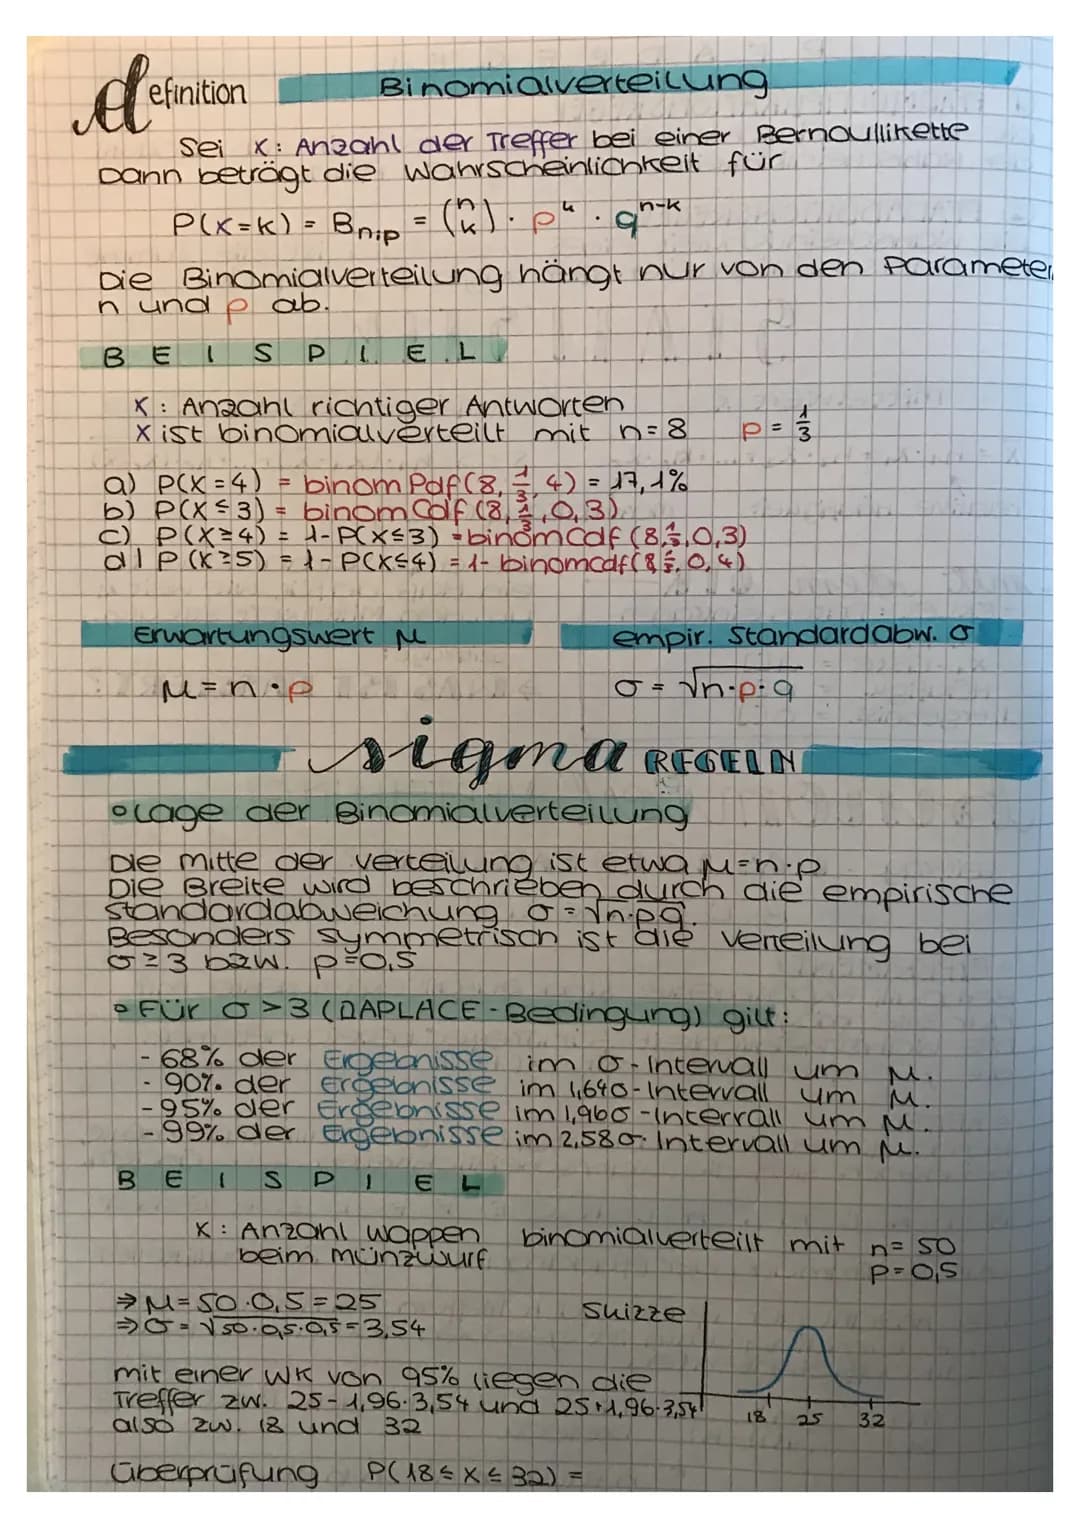 definition Binomialverteilung
Sei X: Anzahl der Treffer bei einer Bernoullikette
Dann beträgt die Wahrscheinlichkeit für
P(X=k) = Bn;p = (n k) · p^k · q^n-k
Die Binomialverteilung hängt nur von den Parameter
n und p ab.
BEISPIEL
X: Anzahl richtiger Antworten
X ist binomialverteilt mit n=8 p = 1/3
a) P(X=4) = binomPdf(8, 1/3, 4) = 17,1%
b) P(X≤3) = binomCdf(8, 1/3, 0,3)
c) P(X≥4) = 1-P(X≤3) = binomcdf(8, 1/3, 0,3)
d) P(X≥5) = 1-P(X≤4) = 1- binomcdf(8 1/3, 0,4)
Erwartungswert μ empir. Standardabw. σ
μ=n·p σ = √n·p·q
sigma REGELN
• Lage der Binomialverteilung
Die Mitte der Verteilung ist etwa μ=n·p
Die Breite wird beschrieben durch die empirische
Standardabweichung σ=√n·p·q.
Besonders symmetrisch ist die Verteilung bei
σ≥3 bzw. p=0,5
• Für σ>3 (LAPLACE-Bedingung) gilt:
- 68% der Ergebnisse im σ-Intervall um μ.
- 90% der Ergebnisse im 1,64σ-Intervall um μ.
- 95% der Ergebnisse im 1,96σ-Intervall um μ.
- 99% der Ergebnisse im 2,58σ-Intervall um μ.
BEISPIEL
X: Anzahl Wappen binomialverteilt mit n=50
beim Münzwurf p=0,5
⇒ μ=50·0,5=25 Skizze
⇒ σ=√50·0,5·0,5=3,54
mit einer WK von 95% liegen die
Treffer zw. 25-1,96·3,54 und 25+1,96·3,54
also zw. 18 und 32
18 25 32
Überprüfung P(18≤X≤32) =